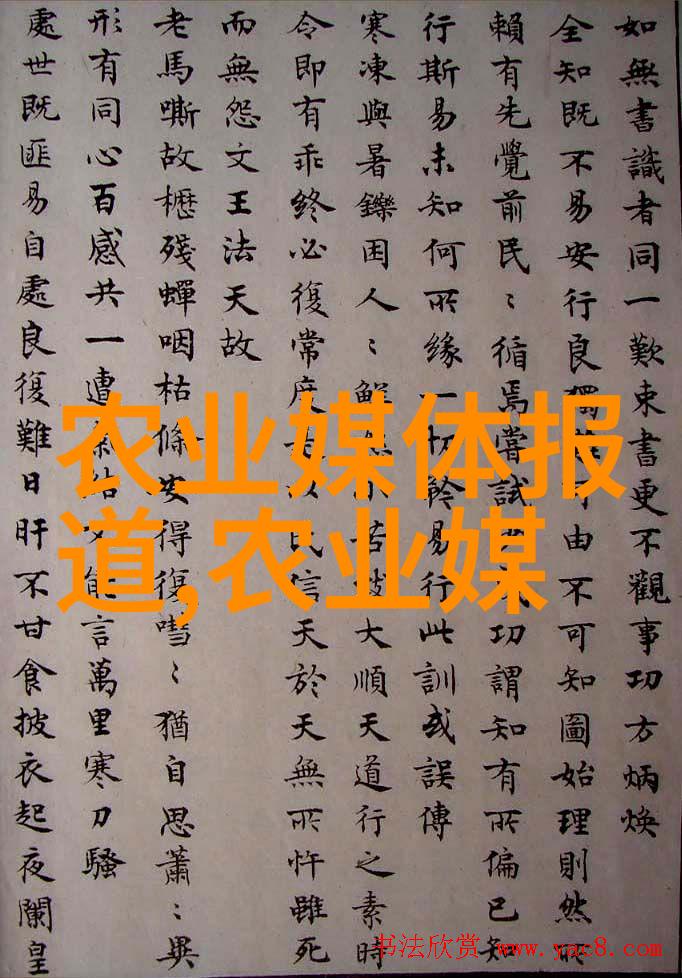 如無書識者同一歎束書更不觀事功方炳煥
全知既不易安行良獨可由不可知圖始理則然所
賴有先覺前民〻循焉嘗試功謂知有所偏已知
行斯易未知何所緣一切矜易行此訓或誤傳
寒凍與暑鑠困人〻鮮小苦大順天道行之素時
令即有乖終必復常度以民信天於天無所忤雖死
而無怨文王法天故
老馬嘶故櫪殘蟬咽枯條安得復嘒〻猶自思蕭〻異
形有同心百感共一遭能言萬里寒刀騷
處世既匪易自處良復難日旰不甘食披衣起夜闌皇
农业媒体报
道,农业媒
书法欣赏 www.yac8.com